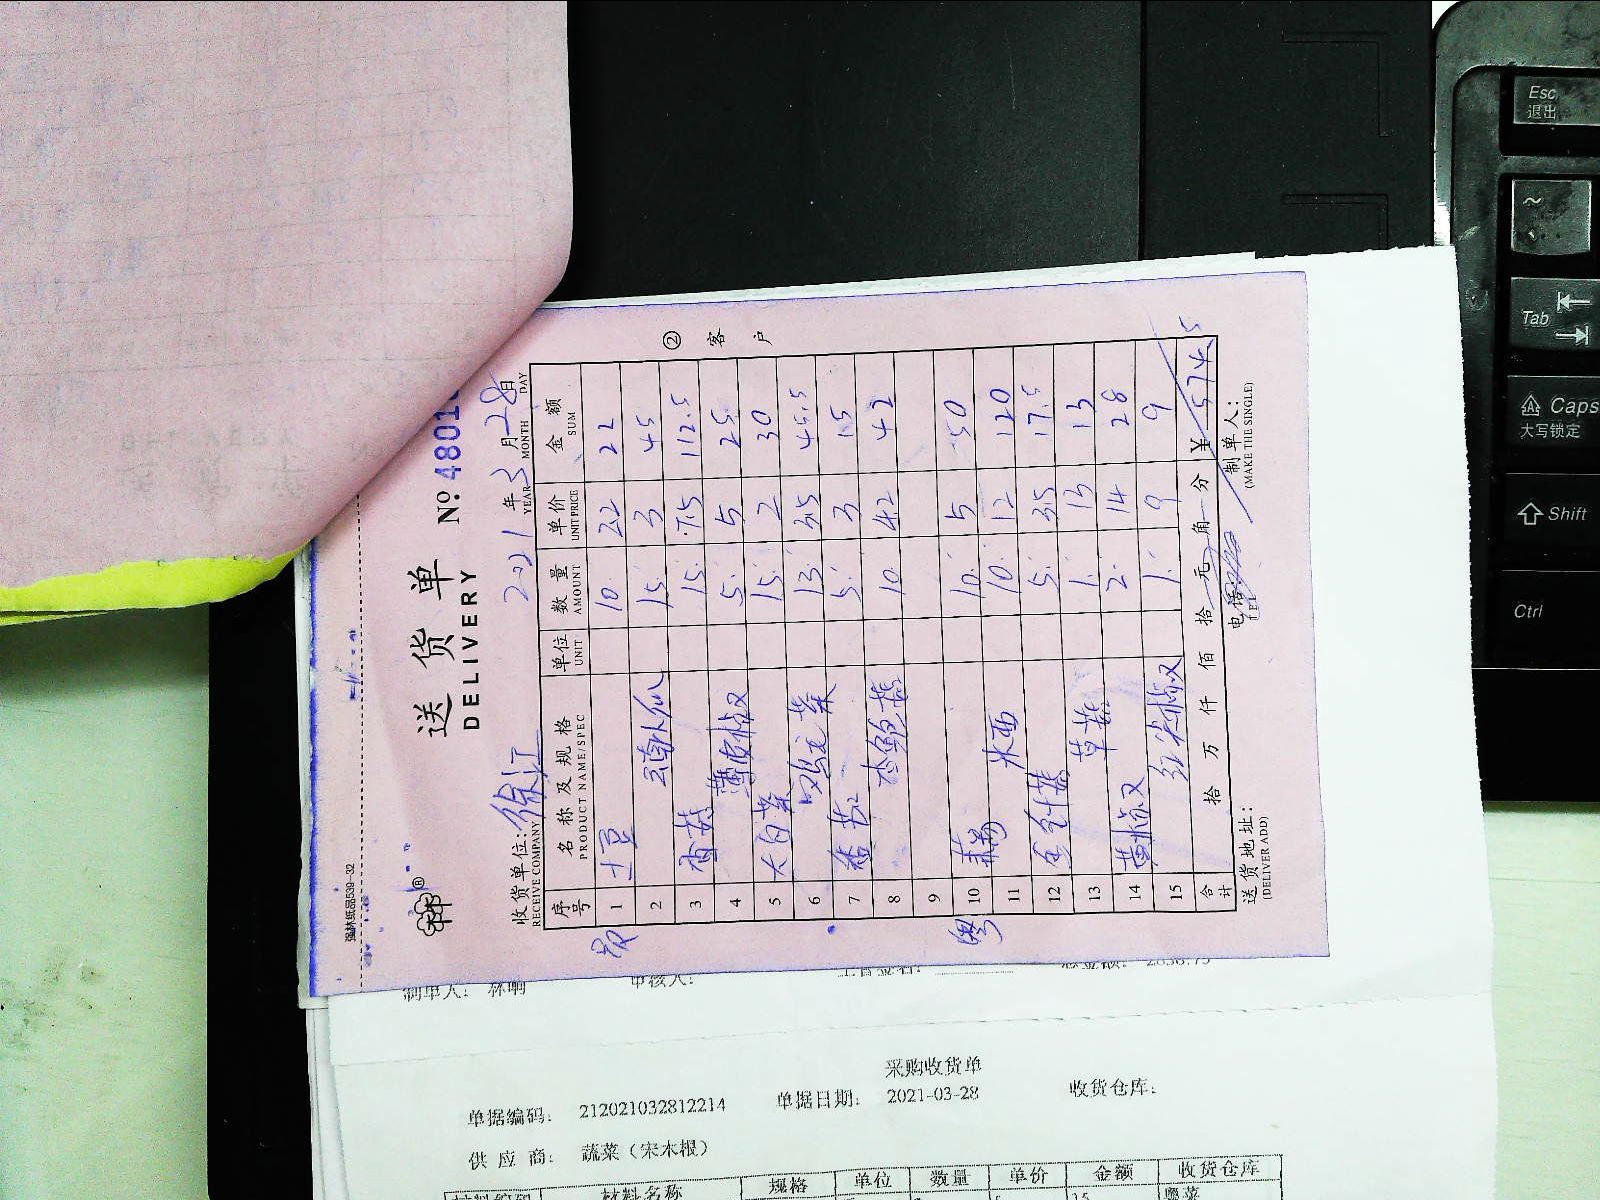 强林纸品539-32
送货单
DELIVERY
№ 4801
2021年3月28日
YEAR MONTH DAY
收货单位：徐汇
RECEIVE COMPANY
② 客户
序号 名称及规格 单位 数量 单价 金额
PRODUCT NAME/SPEC UNIT AMOUNT UNIT PRICE SUM
1 土豆 10. 2.2 22
2 15. 3 45
3 香菇 15. 7.5 112.5
4 薄皮椒 5. 5 25
5 大白菜 15. 2 30
6 娃菜 13. 3.5 45.5
7 番茄 5. 3 15
8 杏鲍菇 10 4.2 42
9
粤 10 10. 5 50
11 西 10. 12 120
12 金针菇 5. 3.5 17.5
13 草菇 1. 13 13
14 黄椒 2. 14 28
15 红椒 1. 9 9
合计 拾 万 仟 佰 拾 元 角 分 ¥ 574.5
送货地址：
(DELIVER ADD)
电话
TEL
制单人：
(MAKE THE SINGLE)
制单人： 林响
审核人：
主管签名：
总金额： 2836.75
采购收货单
单据编码： 212021032812214 单据日期： 2021-03-28 收货仓库：
供应商： 蔬菜（宋木根）
材料编码 材料名称 规格 单位 数量 单价 金额 收货仓库
15 粤菜
Esc
退出
~
Tab
Caps
大写锁定
Shift
Ctrl